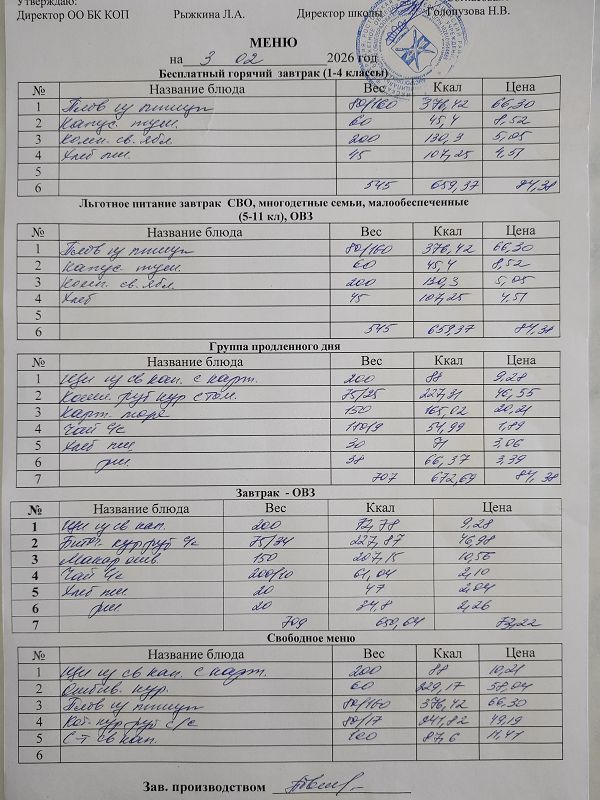 Утверждаю:
Директор ОО БК КОП Рыжкина Л.А. Директор школы Голопузова Н.В.
МЕНЮ
на 3 02 2026 год
Бесплатный горячий завтрак (1-4 классы)
№ Название блюда Вес Ккал Цена
1 Плов из птицы 80/160 376,42 66,30
2 Капус. туш. 60 45,4 8,52
3 Комп. св. ябл. 200 130,3 5,05
4 Хлеб пш. 45 107,25 4,51
5
6 545 659,37 84,38
Льготное питание завтрак СВО, многодетные семьи, малообеспеченные
(5-11 кл), ОВЗ
№ Название блюда Вес Ккал Цена
1 Плов из птицы 80/160 376,42 66,30
2 Капус. туш. 60 45,4 8,52
3 Комп. св. ябл. 200 130,3 5,05
4 Хлеб 45 107,25 4,51
5
6 545 659,37 84,38
Группа продленного дня
№ Название блюда Вес Ккал Цена
1 Щи из св кап. с карт. 200 88 9,28
2 руб кур с том. 75/25 227,31 46,55
3 Карт. пюре 150 165,02 20,21
4 Чай с/с 54,99 1,89
5 Хлеб пш. 30 71 3,06
6 рж. 38 66,37 3,39
7 707 672,69 84,38
Завтрак - ОВЗ
№ Название блюда Вес Ккал Цена
1 Щи из св кап. 200 72,78 9,28
2 Биточ. кур руб с/с 75/34 227,87 46,98
3 Макар отв. 150 207,15 10,56
4 Чай с/с 200/10 61,04 2,10
5 Хлеб пш 20 47 2,04
6 рж 20 34,8 2,26
7 709 650,64 73,22
Свободное меню
№ Название блюда Вес Ккал Цена
1 Щи из св кап. с карт. 200 88 10,21
2 Отбив. кур. 60 229,17 58,04
3 Плов из птицы 80/160 376,42 66,30
4 Кот. кур руб с/с 80/17 241,82 49,19
5 С-т св кап. 100 87,6 11,41
6
Зав. производством